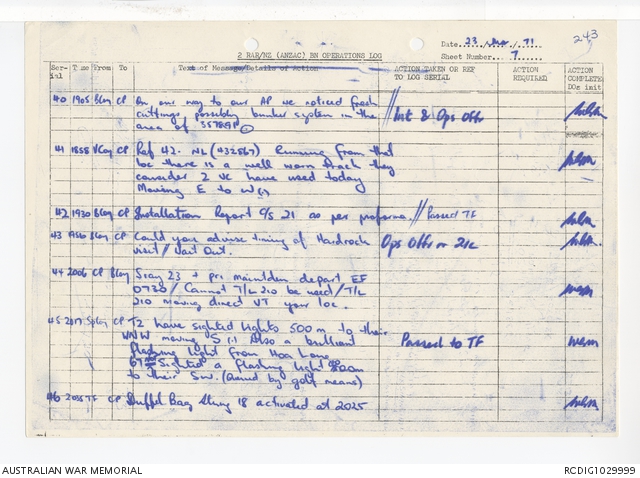 243
2 RAR/NZ (ANZAC) BN OPERATIONS LOG
Date 23/ /71
Sheet Number 7
Serial Time From To Text of Message/Details of Action ACTION TAKEN OR REF TO LOG SERIAL ACTION REQUIRED ACTION COMPLETED DOs init
40 1905 BCoy CP On our way to our AP we noticed fresh
cuttings, possibly bunker system in the Int & Ops Offr
area of
41 1858 VCoy CP Ref 42. NL (432567) Running from that
loc there is a well worn track they
consider 2 VC have used today
Moving E to W
42 1930 BCoy CP Installation Report C/S 21 as per proforma // Passed TF
43 1956 BCoy CP Could you advise timing of Hardrock Ops Offr or 2ic
visit / Wait Out.
44 2006 CP BCoy Sray 23 + pri maintdem depart EF
0730 / Cannot T/L 210 be used / T/L
210 moving direct VT your loc.
45 2017 CP T2 have sighted lights 500m to their
WNW moving S Also a brilliant Passed to TF
flashing light from Hoa Long
Sighted a flashing light
to their SW. ( by golf means)
46 2035 TF CP Duffel Bag String 18 activated at 2025
AUSTRALIAN WAR MEMORIAL
RCDIG1029999